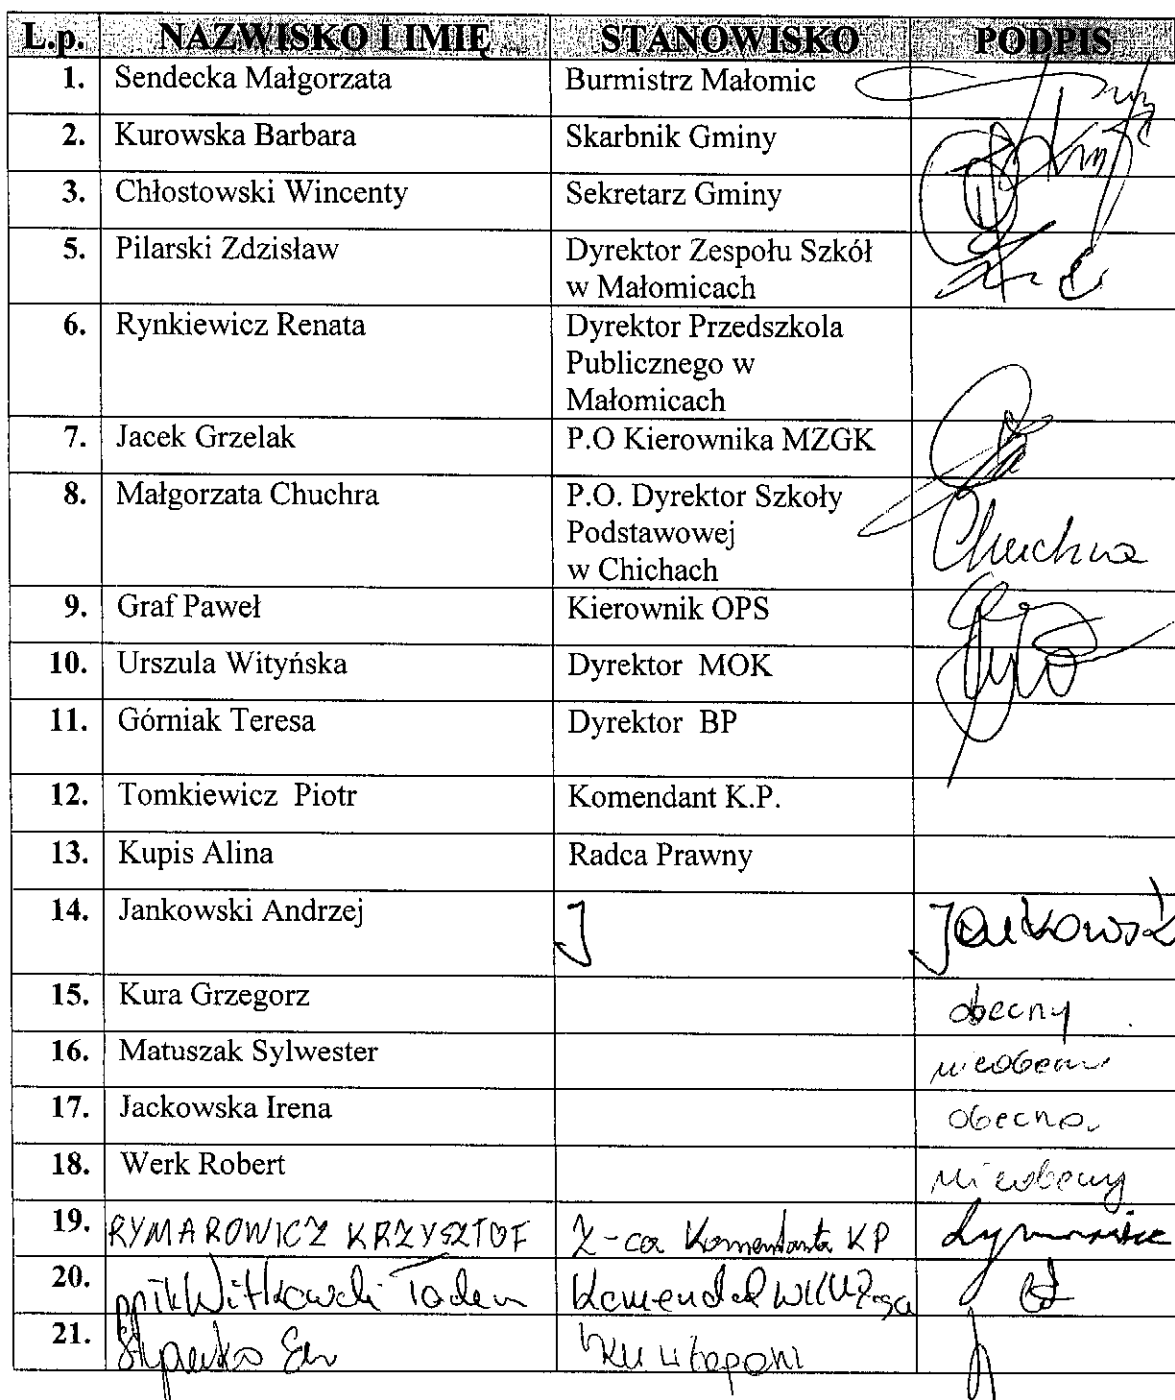 L.p. NAZWISKO I IMIĘ STANOWISKO PODPIS
1. Sendecka Małgorzata Burmistrz Małomic
2. Kurowska Barbara Skarbnik Gminy
3. Chłostowski Wincenty Sekretarz Gminy
5. Pilarski Zdzisław Dyrektor Zespołu Szkół
w Małomicach
6. Rynkiewicz Renata Dyrektor Przedszkola
Publicznego w
Małomicach
7. Jacek Grzelak P.O Kierownika MZGK
8. Małgorzata Chuchra P.O. Dyrektor Szkoły
Podstawowej
w Chichach
Chuchra
9. Graf Paweł Kierownik OPS
10. Urszula Wityńska Dyrektor MOK
11. Górniak Teresa Dyrektor BP
12. Tomkiewicz Piotr Komendant K.P.
13. Kupis Alina Radca Prawny
14. Jankowski Andrzej J Jankowsk
15. Kura Grzegorz obecny
16. Matuszak Sylwester nieobecny
17. Jackowska Irena obecna
18. Werk Robert nieobecny
19. RYMAROWICZ KRZYSZTOF Z-ca Komendanta KP
20. Witkowski
21.